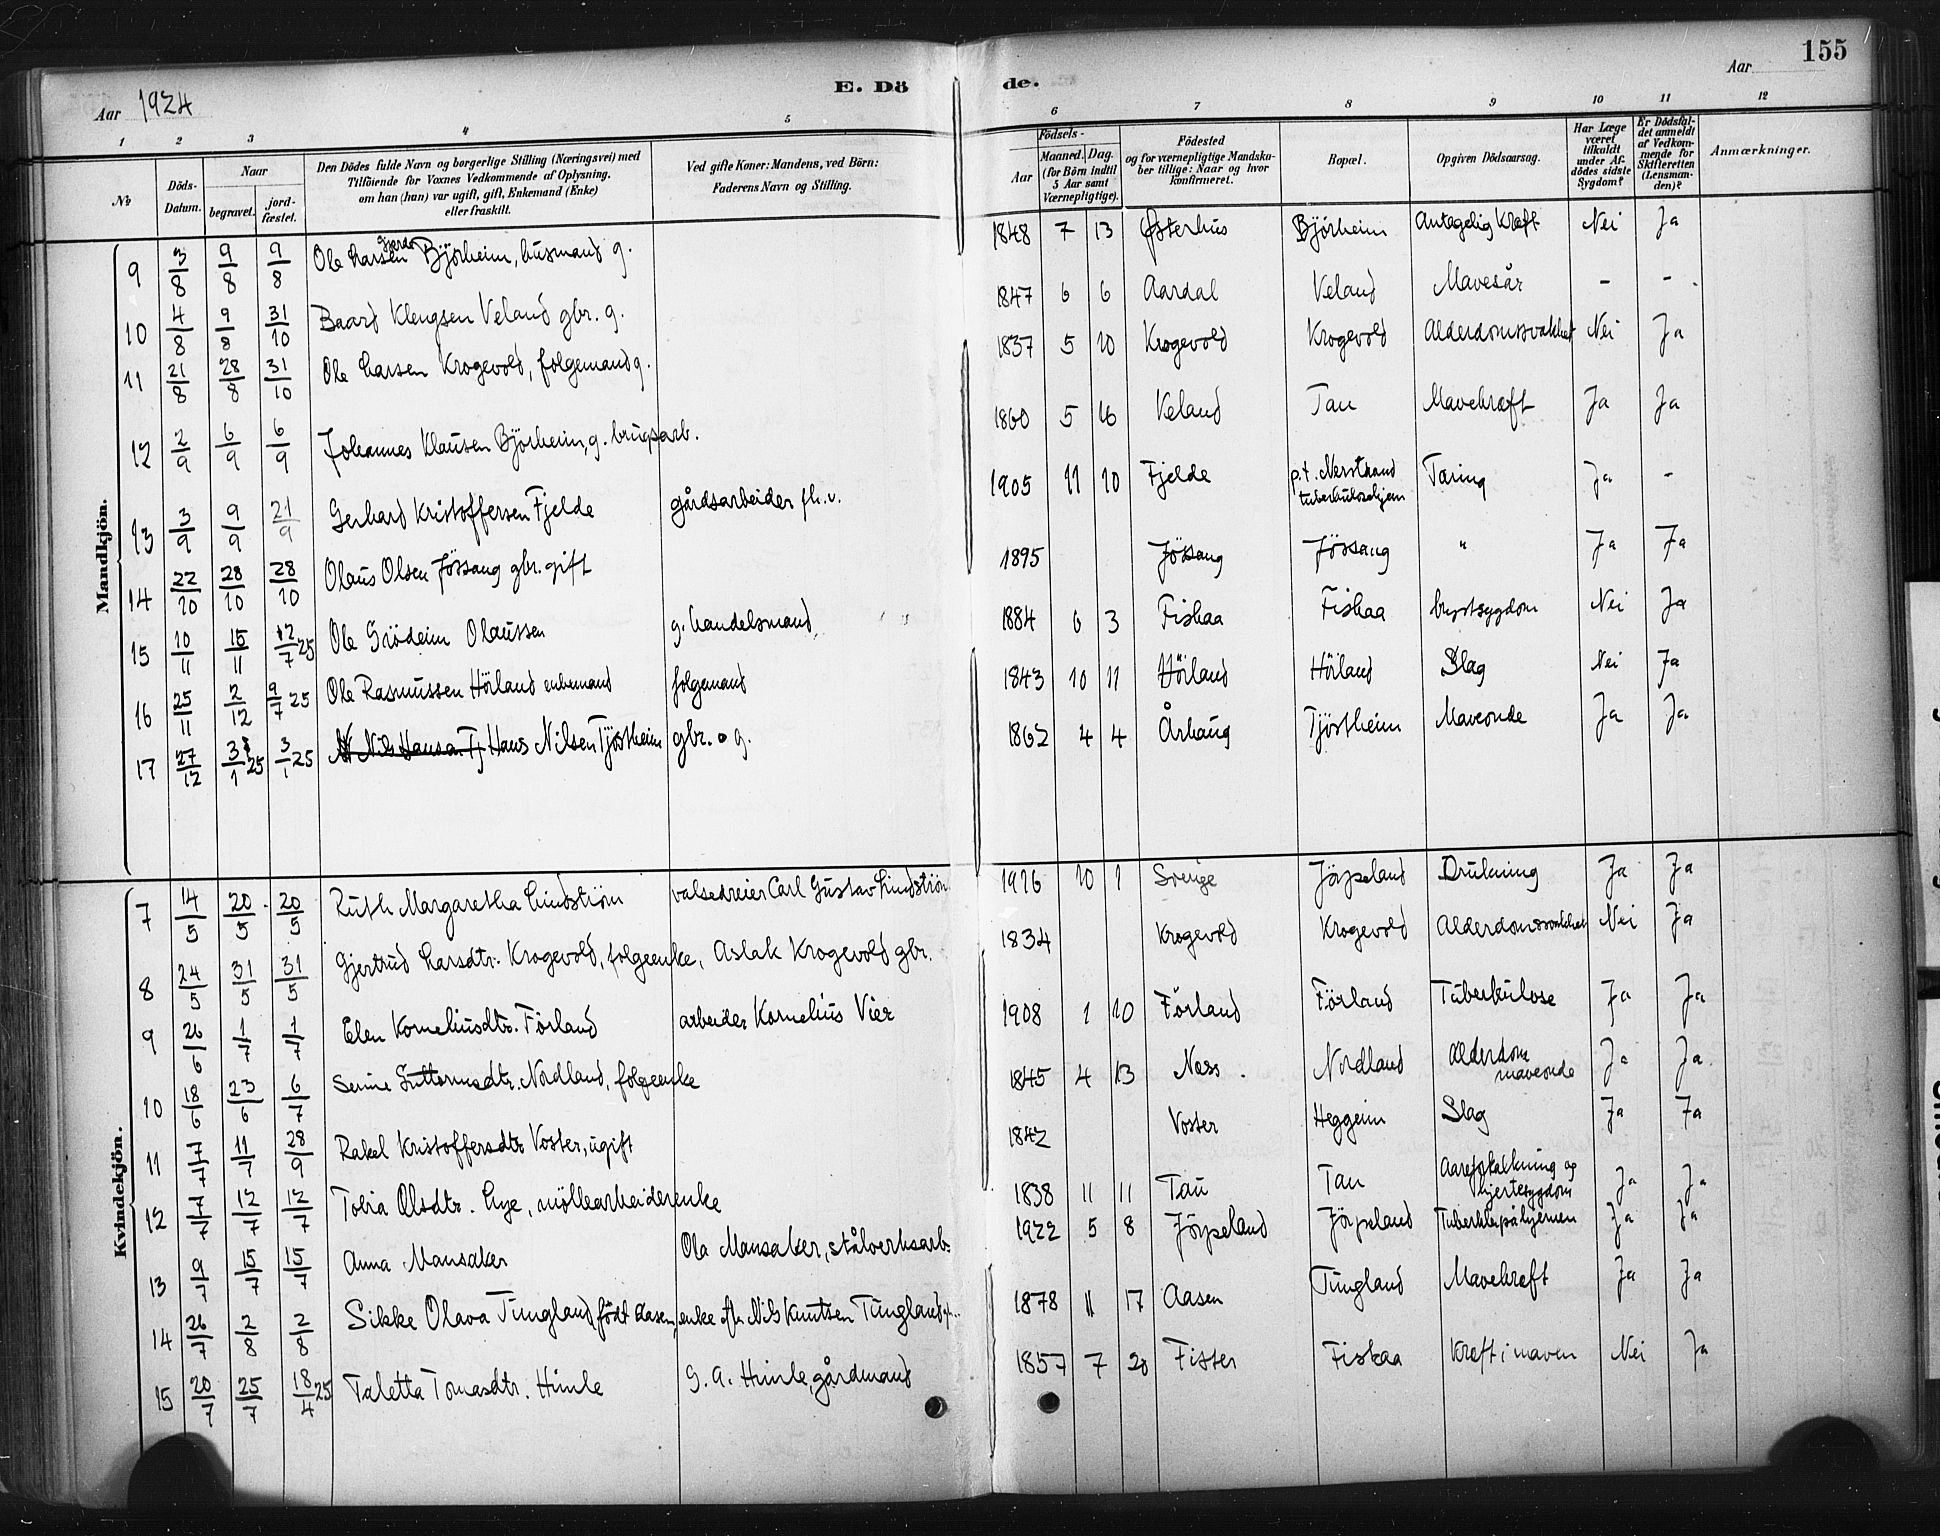 155
E. Dö de.
Aar 1924
Aar
1 2 3 4 5 6 7 8 9 10 11 12
№
Döds-Datum.
Naar
begravet.
jord-fæstet.
Den Dödes fulde Navn og borgerlige Stilling (Næringsvei) med
Tilföiende for Voxnes Vedkommende af Oplysning.
om han (hun) var ugift, gift, Enkemand (Enke)
eller fraskilt.
Ved gifte Koner: Mandens, ved Börn:
Faderens Navn og Stilling.
Födsels-
Aar
Maaned. Dag.
(for Börn indtil
5 Aar samt
Værnepligtige).
Födested
og for værnepligtige Mandska-
ber tillige: Naar og hvor
konfirmeret.
Bopæl.
Opgiven Dödsaarsag.
Har Læge
været
tilkaldt
under Af-
dödes sidste
Sygdom?
Er Dödsfal-
det anmeldt
af Vedkom-
mende for
Skifteretten
(Lensman-
den)?
Anmærkninger.
Mandkjön.
9 3/8 9/8 9/8 Ole Larsen Gjerde Björheim, husmand g. 1848 7 13 Østerhus Björheim Antagelig Kræft Nei Ja
10 4/8 9/8 31/10 Baard Klengsen Veland gbr. g. 1847 6 6 Aardal Veland Mavesår - -
11 21/8 28/8 31/10 Ole Larsen Krogevold, folgemand g. 1837 5 10 Krogevold Krogevold Alderdomssvakhet Nei Ja
12 2/9 6/9 6/9 Johannes Klausen Björheim, g. brugsarb. 1860 5 16 Veland Tau Mavekræft Ja Ja
13 3/9 9/9 21/9 Gerhard Kristoffersen Fjelde gårdsarbeider fh.v. 1905 11 10 Fjelde p.t. Nerstrand tuberkulosehjem Tæring Ja -
14 22/10 28/10 28/10 Olaus Olsen Jössang gbr. gift 1895 Jössang Jössang " Ja Ja
15 10/11 15/11 12/7 25 Ole Grödeim Olaussen g. handelsmand 1884 6 3 Fiskaa Fiskaa brystsygdom Nei Ja
16 25/11 2/12 9/7 25 Ole Rasmussen Hörland enkemand folgemand 1843 10 11 Hörland Hörland Slag Nei Ja
17 27/12 3/1 25 3/1 25 Nils Hansen Tj Hans Nilsen Tjöstheim gbr. g. 1862 4 4 Århaug Tjöstheim Maveonde Ja Ja
Kvindekjön.
7 14/5 20/5 20/5 Ruth Margaretha Lindström valsedreier Carl Gustav Lindström 1916 10 1 Sverige Jörpeland Drukning Ja Ja
8 24/5 31/5 31/5 Gjertrud Larsdtr. Krogevold, folgeenke, Aslak Krogevold gbr. 1834 Krogevold Krogevold Alderdomssvakhet Nei Ja
9 26/6 1/7 1/7 Elen Korneliusdtr. Förland arbeider Kornelius Vier 1908 1 10 Förland Förland Tuberkulose Ja Ja
10 18/6 23/6 6/7 Serine Guttormsdtr. Nordland, folgeenke 1845 4 13 Næss Nordland Alderdom maveonde Ja Ja
11 7/7 11/7 28/9 Rakel Kristoffersdtr Voster, ugift 1842 Voster Heggeim Slag Ja Ja
12 7/7 12/7 12/7 Tobia Olsdtr. Lye, möllearbeiderenke 1838 11 11 Tau Tau Aareforkalkning og hjertesygdom Ja Ja
13 9/7 15/7 15/7 Anna Mansaker Ola Mansaker, stålverksarb. 1922 5 8 Jörpeland Jörpeland Tuberkler på hjernen Ja Ja
14 26/7 2/8 2/8 Sikke Olava Tungland, födt Aasen, enke eft. Nils Knutsen Tungland 1878 11 17 Aasen Tungland Mavekreft Ja Ja
15 20/7 25/7 18/4 25 Taletta Tomasdtr. Himle G. A. Himle, gårdmand 1857 7 20 Fister Fiskaa Kreft i maven Nei Ja